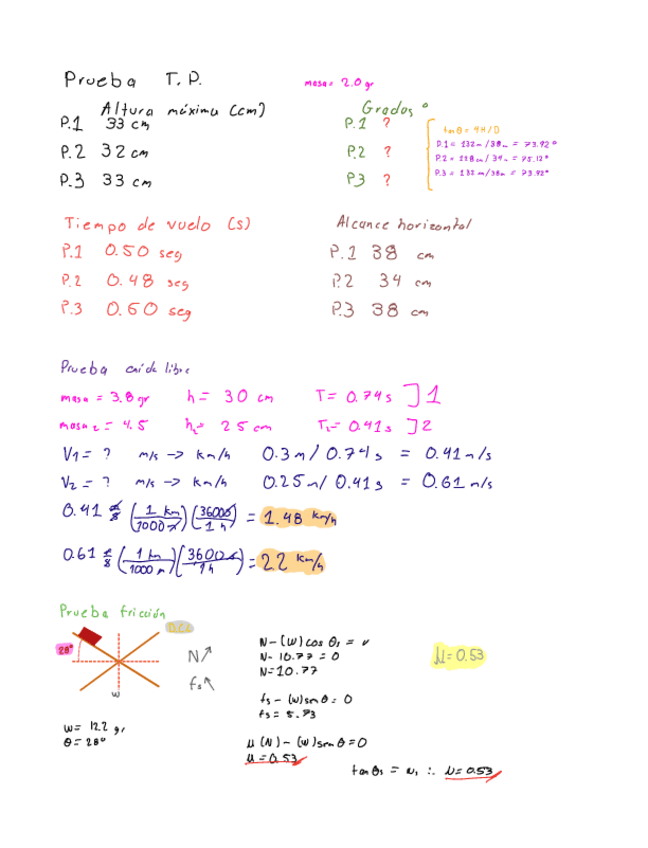 Prueba T.P.
masa = 2.0 gr
Altura máxima (cm)
P.1 33 cm
P.2 32 cm
P.3 33 cm
Grados °
P.1 ?
P.2 ?
P.3 ?
tan θ = 4H/D
P.1 = 132m/38m = 73.92°
P.2 = 128cm/34m = 75.12°
P.3 = 132m/38m = 73.92°
Tiempo de vuelo (s)
P.1 0.50 seg
P.2 0.48 seg
P.3 0.60 seg
Alcance horizontal
P.1 38 cm
P.2 34 cm
P.3 38 cm
Prueba caída libre
masa = 3.8 gr h = 30 cm T = 0.74 s ] 1
masa 2 = 4.5 h2 = 25 cm T2 = 0.41 s ] 2
V1 = ? m/s -> km/h 0.3 m / 0.74 s = 0.41 m/s
V2 = ? m/s -> km/h 0.25 m / 0.41 s = 0.61 m/s
0.41 m/s (1 km / 1000 m) (3600 s / 1 h) = 1.48 km/h
0.61 m/s (1 km / 1000 m) (3600 s / 1 h) = 2.2 km/h
Prueba fricción
D.C.L
28°
N↗
fs↖
w
w = 12.2 gr
θ = 28°
N - (W) cos θs =
N - 10.77 = 0
N = 10.77
fs - (w) sen θ = 0
fs = 5.73
μ (N) - (w) sen θ = 0
μ = 0.53
μ = 0.53
tan θs = μs ∴ μ = 0.53